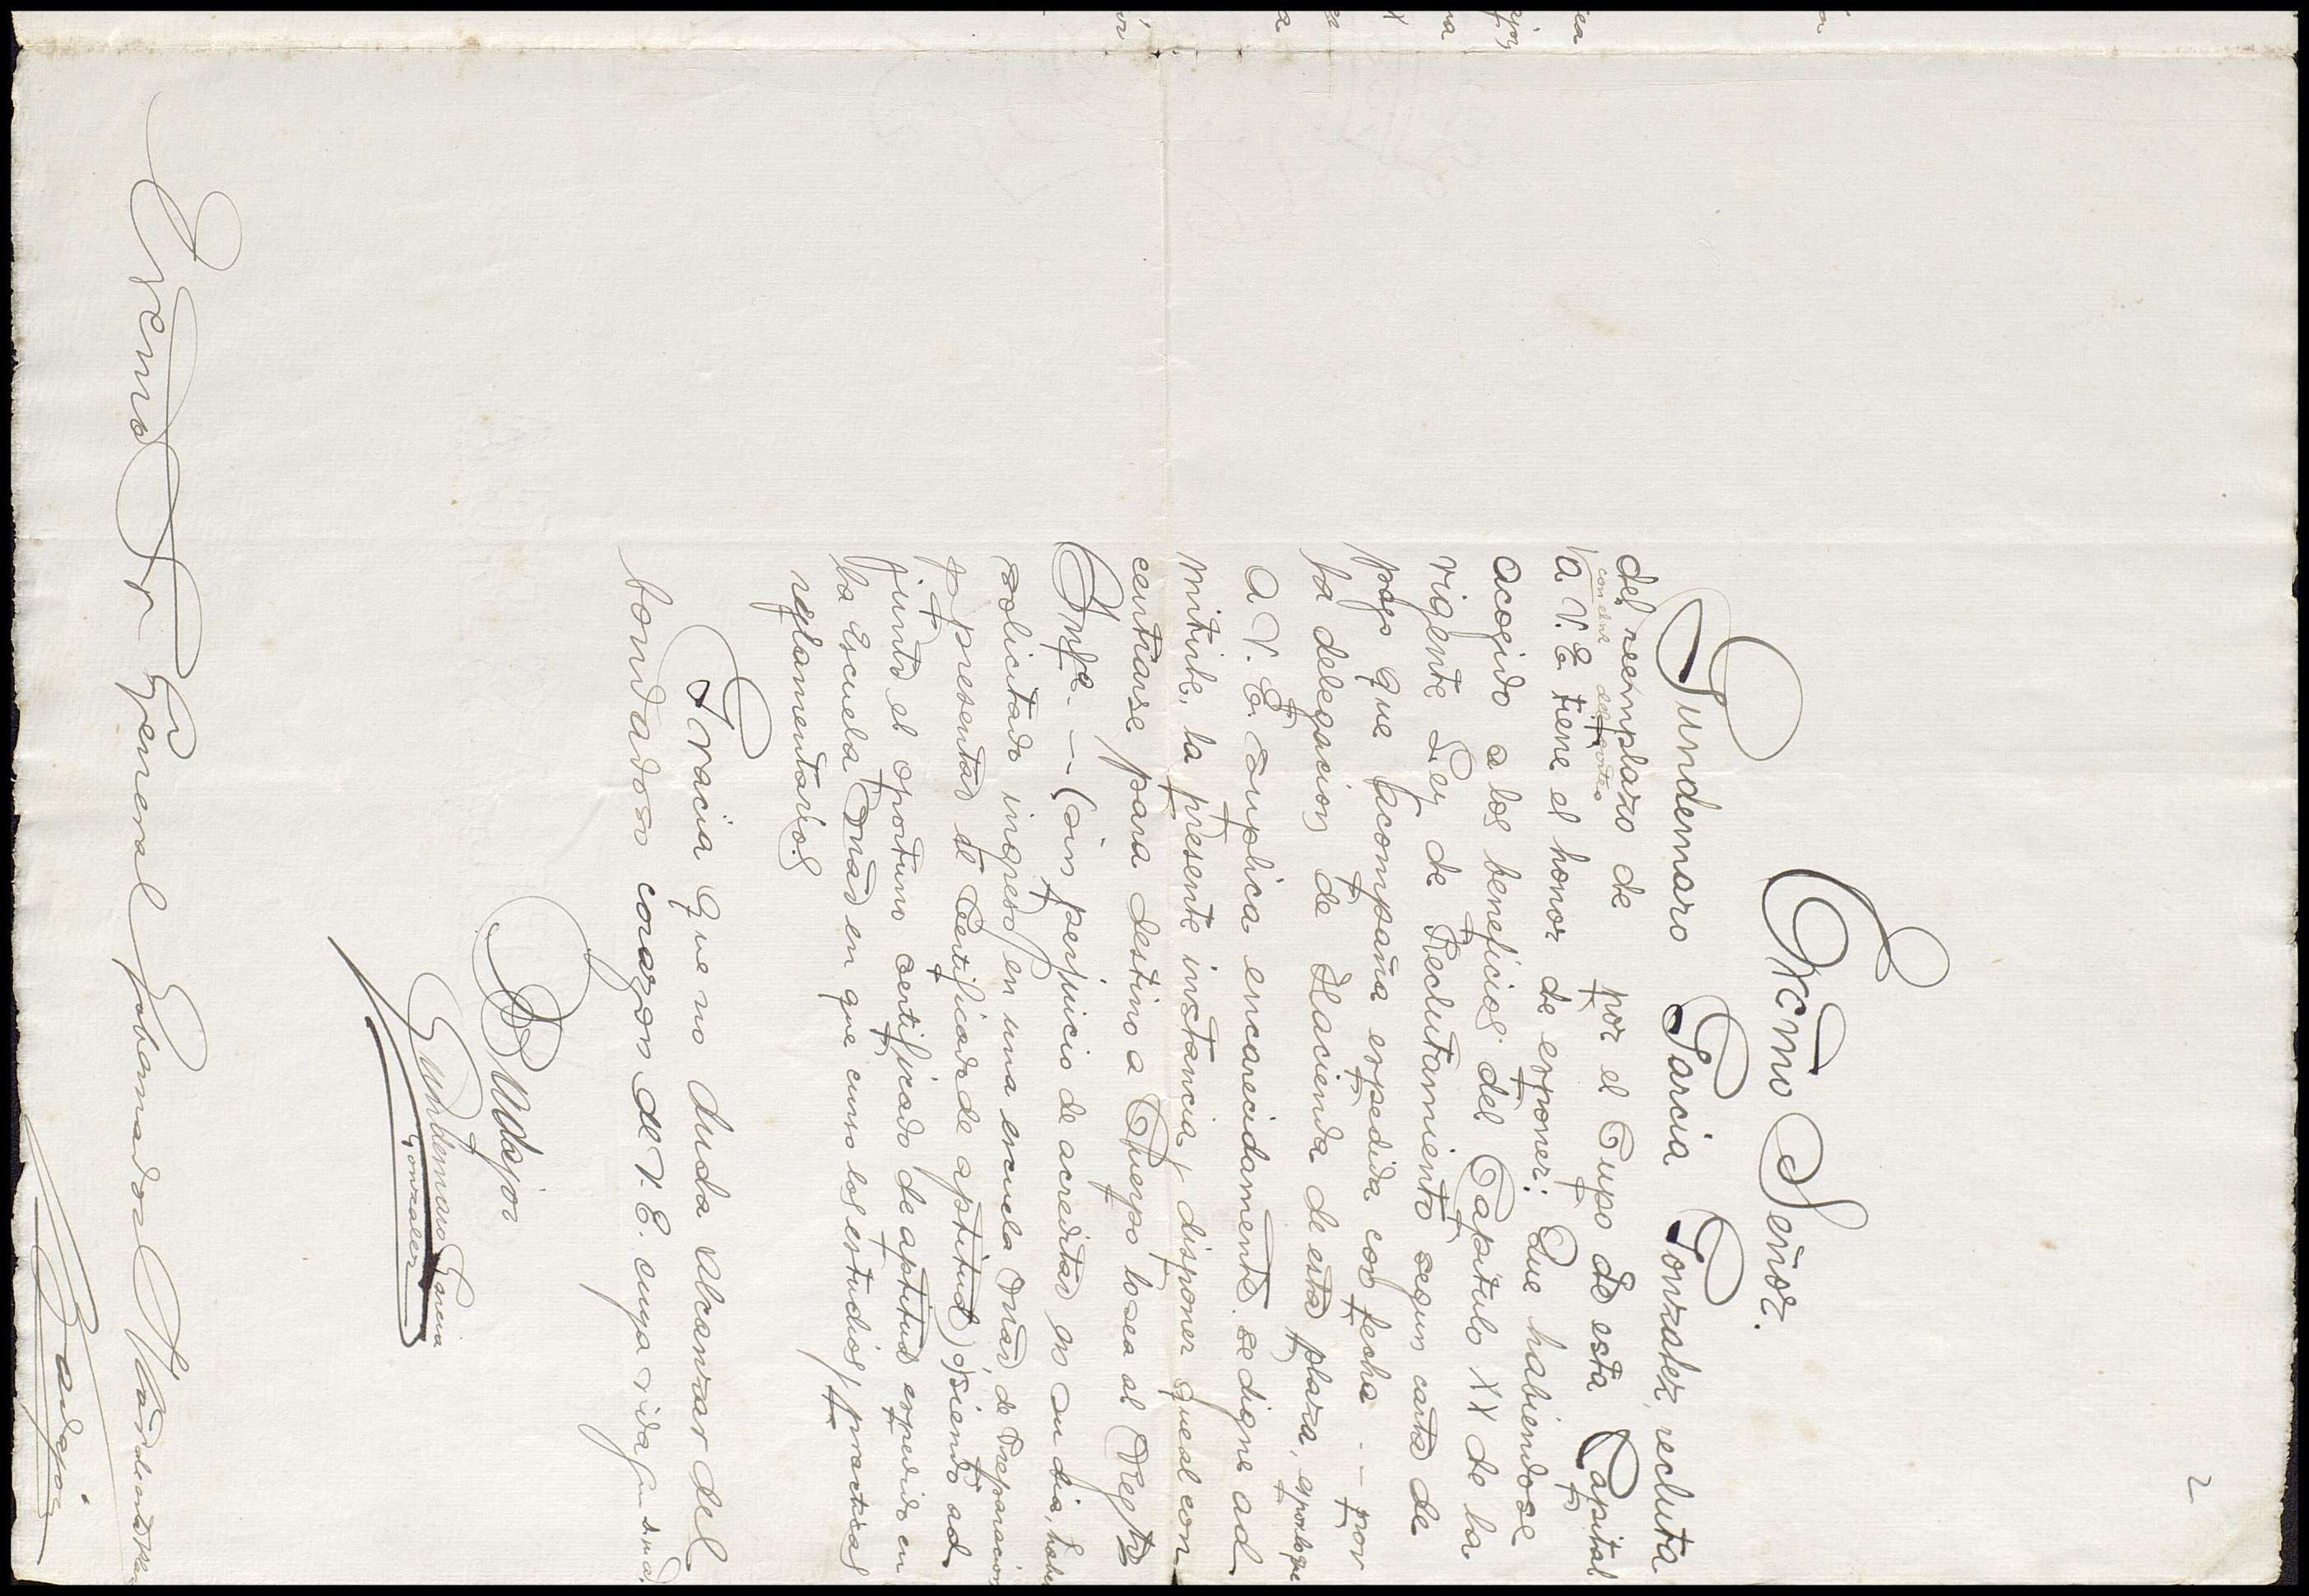 2
Excmo Señor.
Gundemaro Garcia Gonzalez, recluta
del reemplazo de por el Cupo de esta Capital
a V. E. tiene el honor de exponer: Que habiendose
acogido a los beneficios del Capitulo XX de la
vigente Ley de Reclutamiento segun carta de
pago que acompaña expedida con fecha - - por
la delegacion de Hacienda de esta plaza, es por lo que
A V. E. suplica encarecidamente se digne ad
mitirle, la presente instancia y disponer que al con
centrarse para destino a Cuerpo lo sea al Regto
Infa. - - (sin perjuicio de acreditar en su dia, haber
solicitado ingreso en una escuela de Preparacion
presentar el Certificado de aptitud) o siendo ad
junto el oportuno certificado de aptitud expedido en
la Escuela en que curso los estudios y practicas
reglamentarios
Gracia que no duda alcanzar del
bondadoso corazon de V. E. cuya vida
Badajoz
Gundemaro Garcia
Gonzalez
Excmo Sr General Gobernador
Badajoz